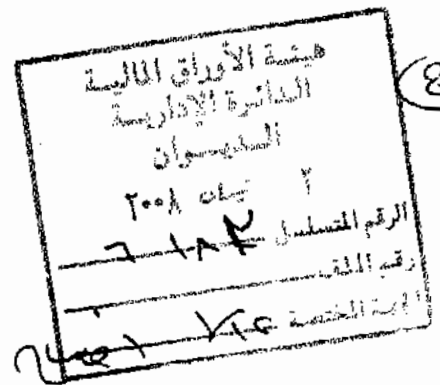 هيئة الأوراق المالية
الدائرة الإدارية
الديوان
٢ نيسان ٢٠٠٨
الرقم المتسلسل ٦١٨٢
رقم الملف
الجهة المختصة